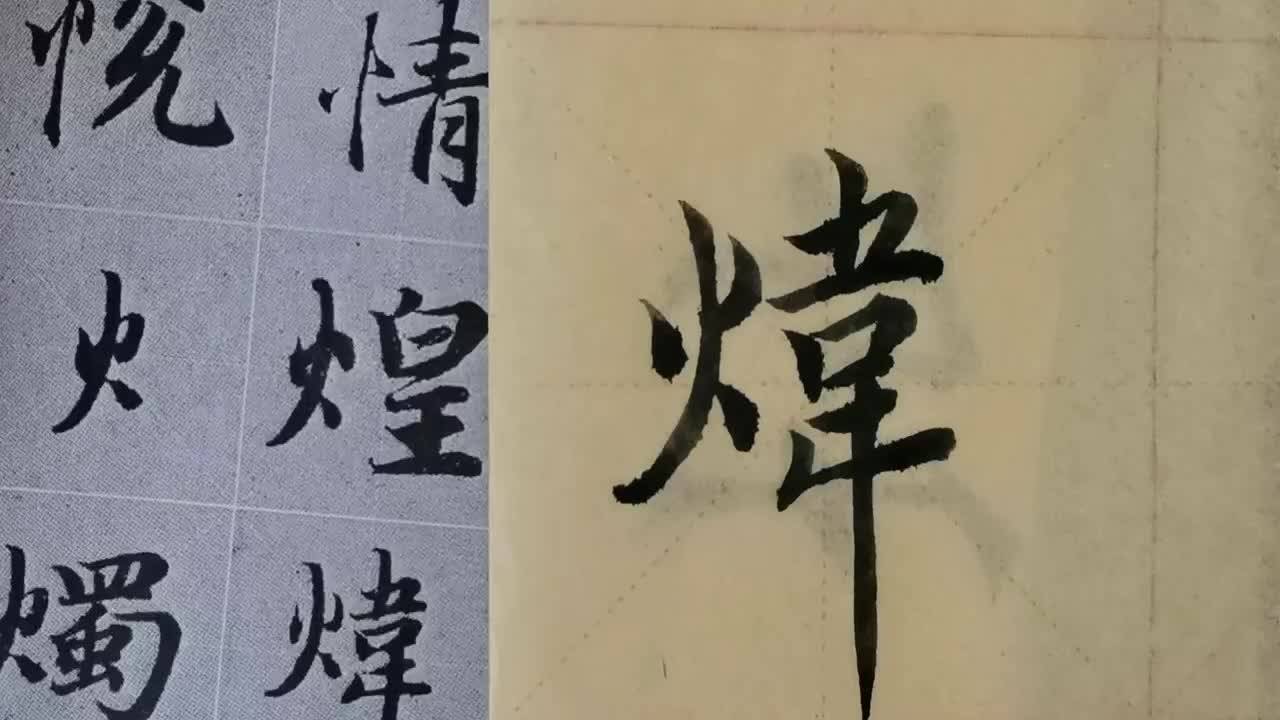 悦 情
火 煌
燭 煒
煒